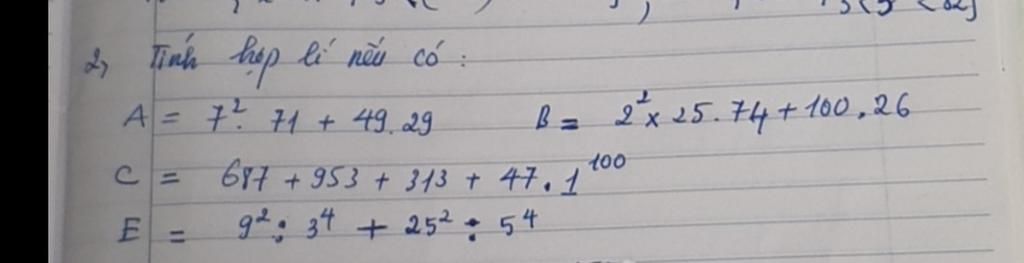 2, Tính hợp lí nếu có :
A = 7². 71 + 49.29 B = 2² × 25.74 + 100.26
C = 687 + 953 + 313 + 47.1¹⁰⁰
E = 9² : 3⁴ + 25² : 5⁴